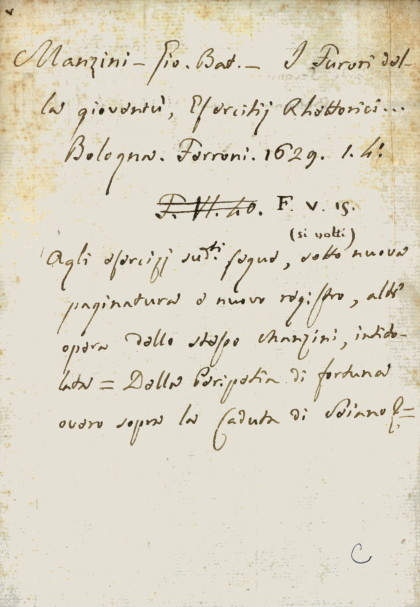 Manzini – Gio. Bat. – I Furori del-
la gioventù, Esercitij Rhettorici...
Bologna. Ferroni. 1629. 1. 4.º
F. VI. 40. F. V. 15.
(si volti)
Agli esercizj su.ti segue, sotto nuova
paginatura e nuovo registro, altr'
opera dello stesso Manzini, intito-
lata = Della Peripetia di fortuna
overo sopra la Caduta di Seiano
C